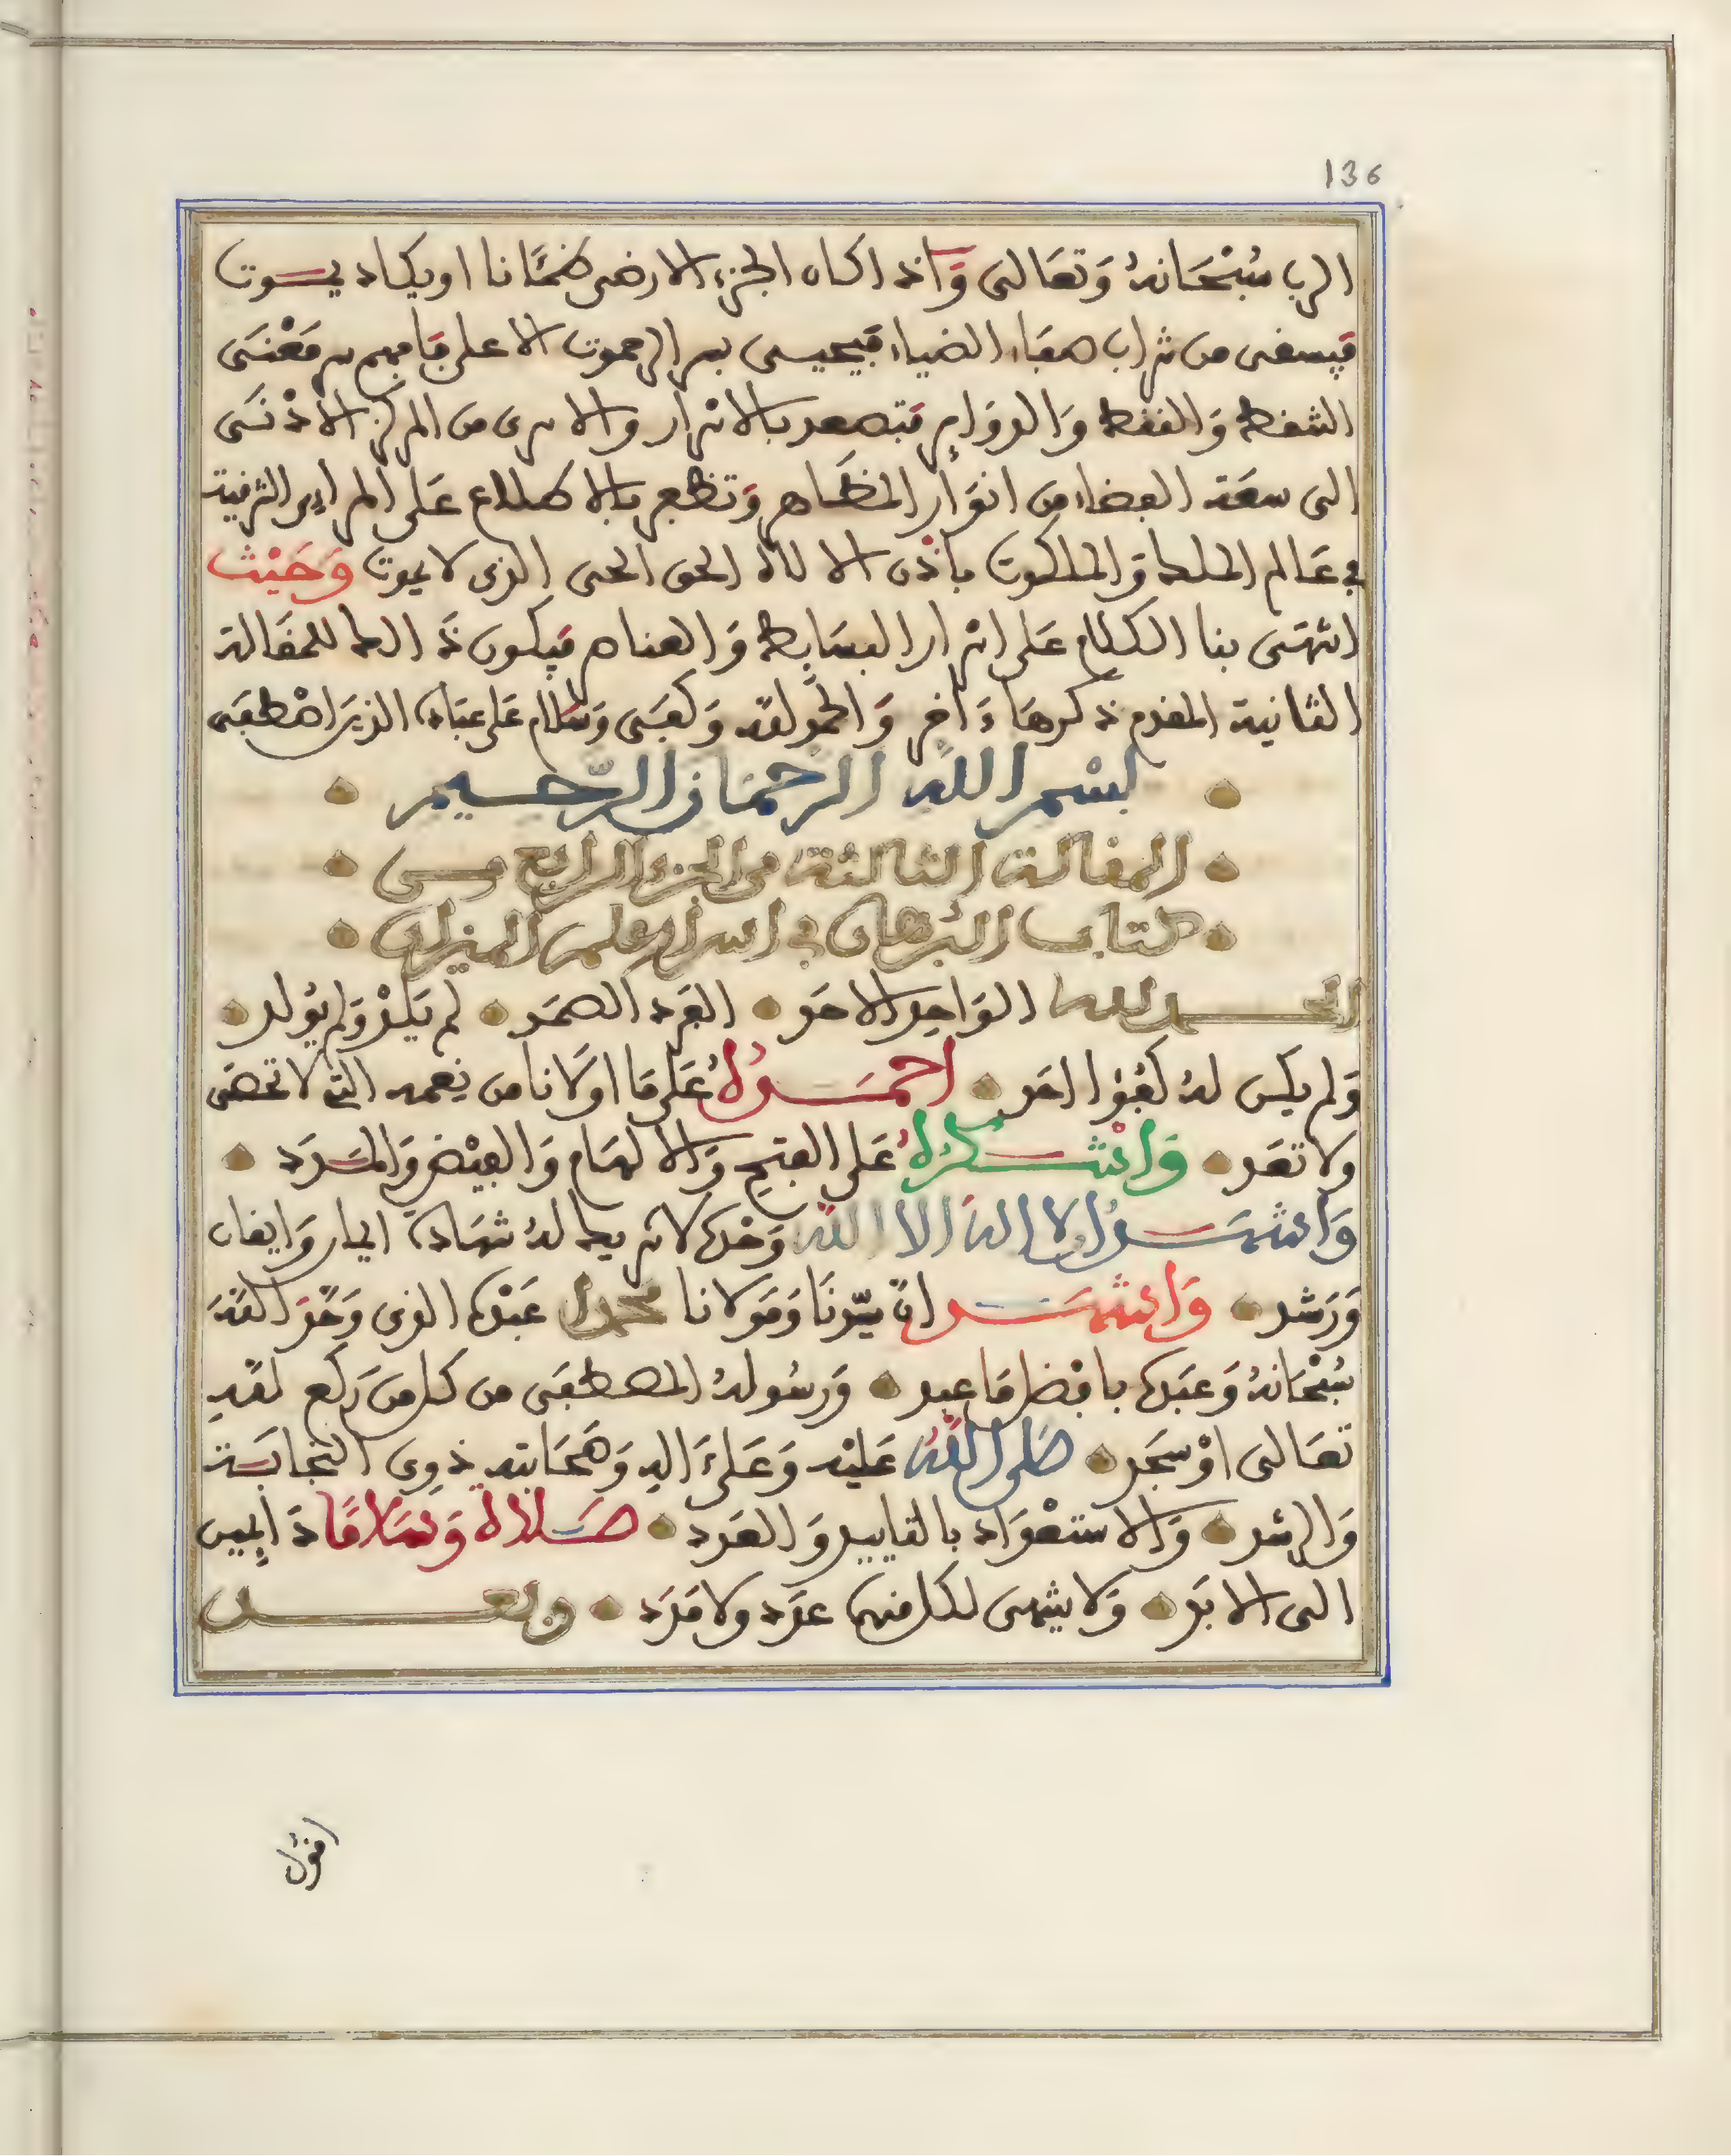 136
الرب سُبْحَانهُ وَتعَالى وَاذ اكان الجزء الارضى ظمْئَانا او يكاد يموت
فيسقى من شراب صفاء الضياء فيحيى بسر الرحموت الا على فافهم سر مَعْنَى
النقط وَالنقط وَالدوَاير فتصعد بالاسرار والاسرى من المركز الادْنَى
الى سعَة الفضاء من انوَار المظَاهر وَتظفر بالاطلاع على المراتب الشرفية
في عَالم الملك وَالملكوت باذْن الاله الحق الحى الذى لا يموت وَحَيْث
انتهَى بنا الكلام عَلى اسرار البسَايط وَالعناصر فيكون ذَالك للمقالة
الثانية المقدم ذكرهَا ءَاخر وَالحمد لله وَكفَى وَسَلام عَلى عبَاده الذين اصْطفَى
بسْم الله الرحمَان الرّحيم
المقالة الثالثة من الجزء الرابع من
كتاب البُرهان في اسرار علم الميزان
الحمد لله الوَاحد الاحَد • الفرْد الصمَد • لم يَلدْ وَلم يُولد •
وَلم يكن لهُ كُفُؤا احَد • احمَدُهُ عَلى مَا اولانا من نِعمه التي لا تحصَى
ولا تعَد • وَاشْكرُهُ عَلى الفتح وَالالهَام وَالفيْض وَالمَدَد •
وَاشهَدُ ان لا الهَ الا اللهُ وَحْدَه لا شريك لهُ شهَادة ايمان وَايقان
وَرَشد • وَاشهَد انّ سيّدنَا وَمَولانا محمدا عَبْده الذى وَحّدَ اللهَ
سُبْحَانهُ وَعبَدَه بافضل مَا عبد • وَرسُولهُ المصطفَى من كل من رَكع للهِ
تعَالى اوْ سجَد • صَلى اللهُ عَليْه وَعَلىَ اله وَصَحَابته ذوِى النجابَة
وَالرشد • وَالاستعْدَاد بالتاييد وَالعَدد • صَلاة وَسَلامًا دَايمين
الى الابَد • وَلا ينتهى لكل منهما عدَد ولا مَدَد • وبعد
اقول